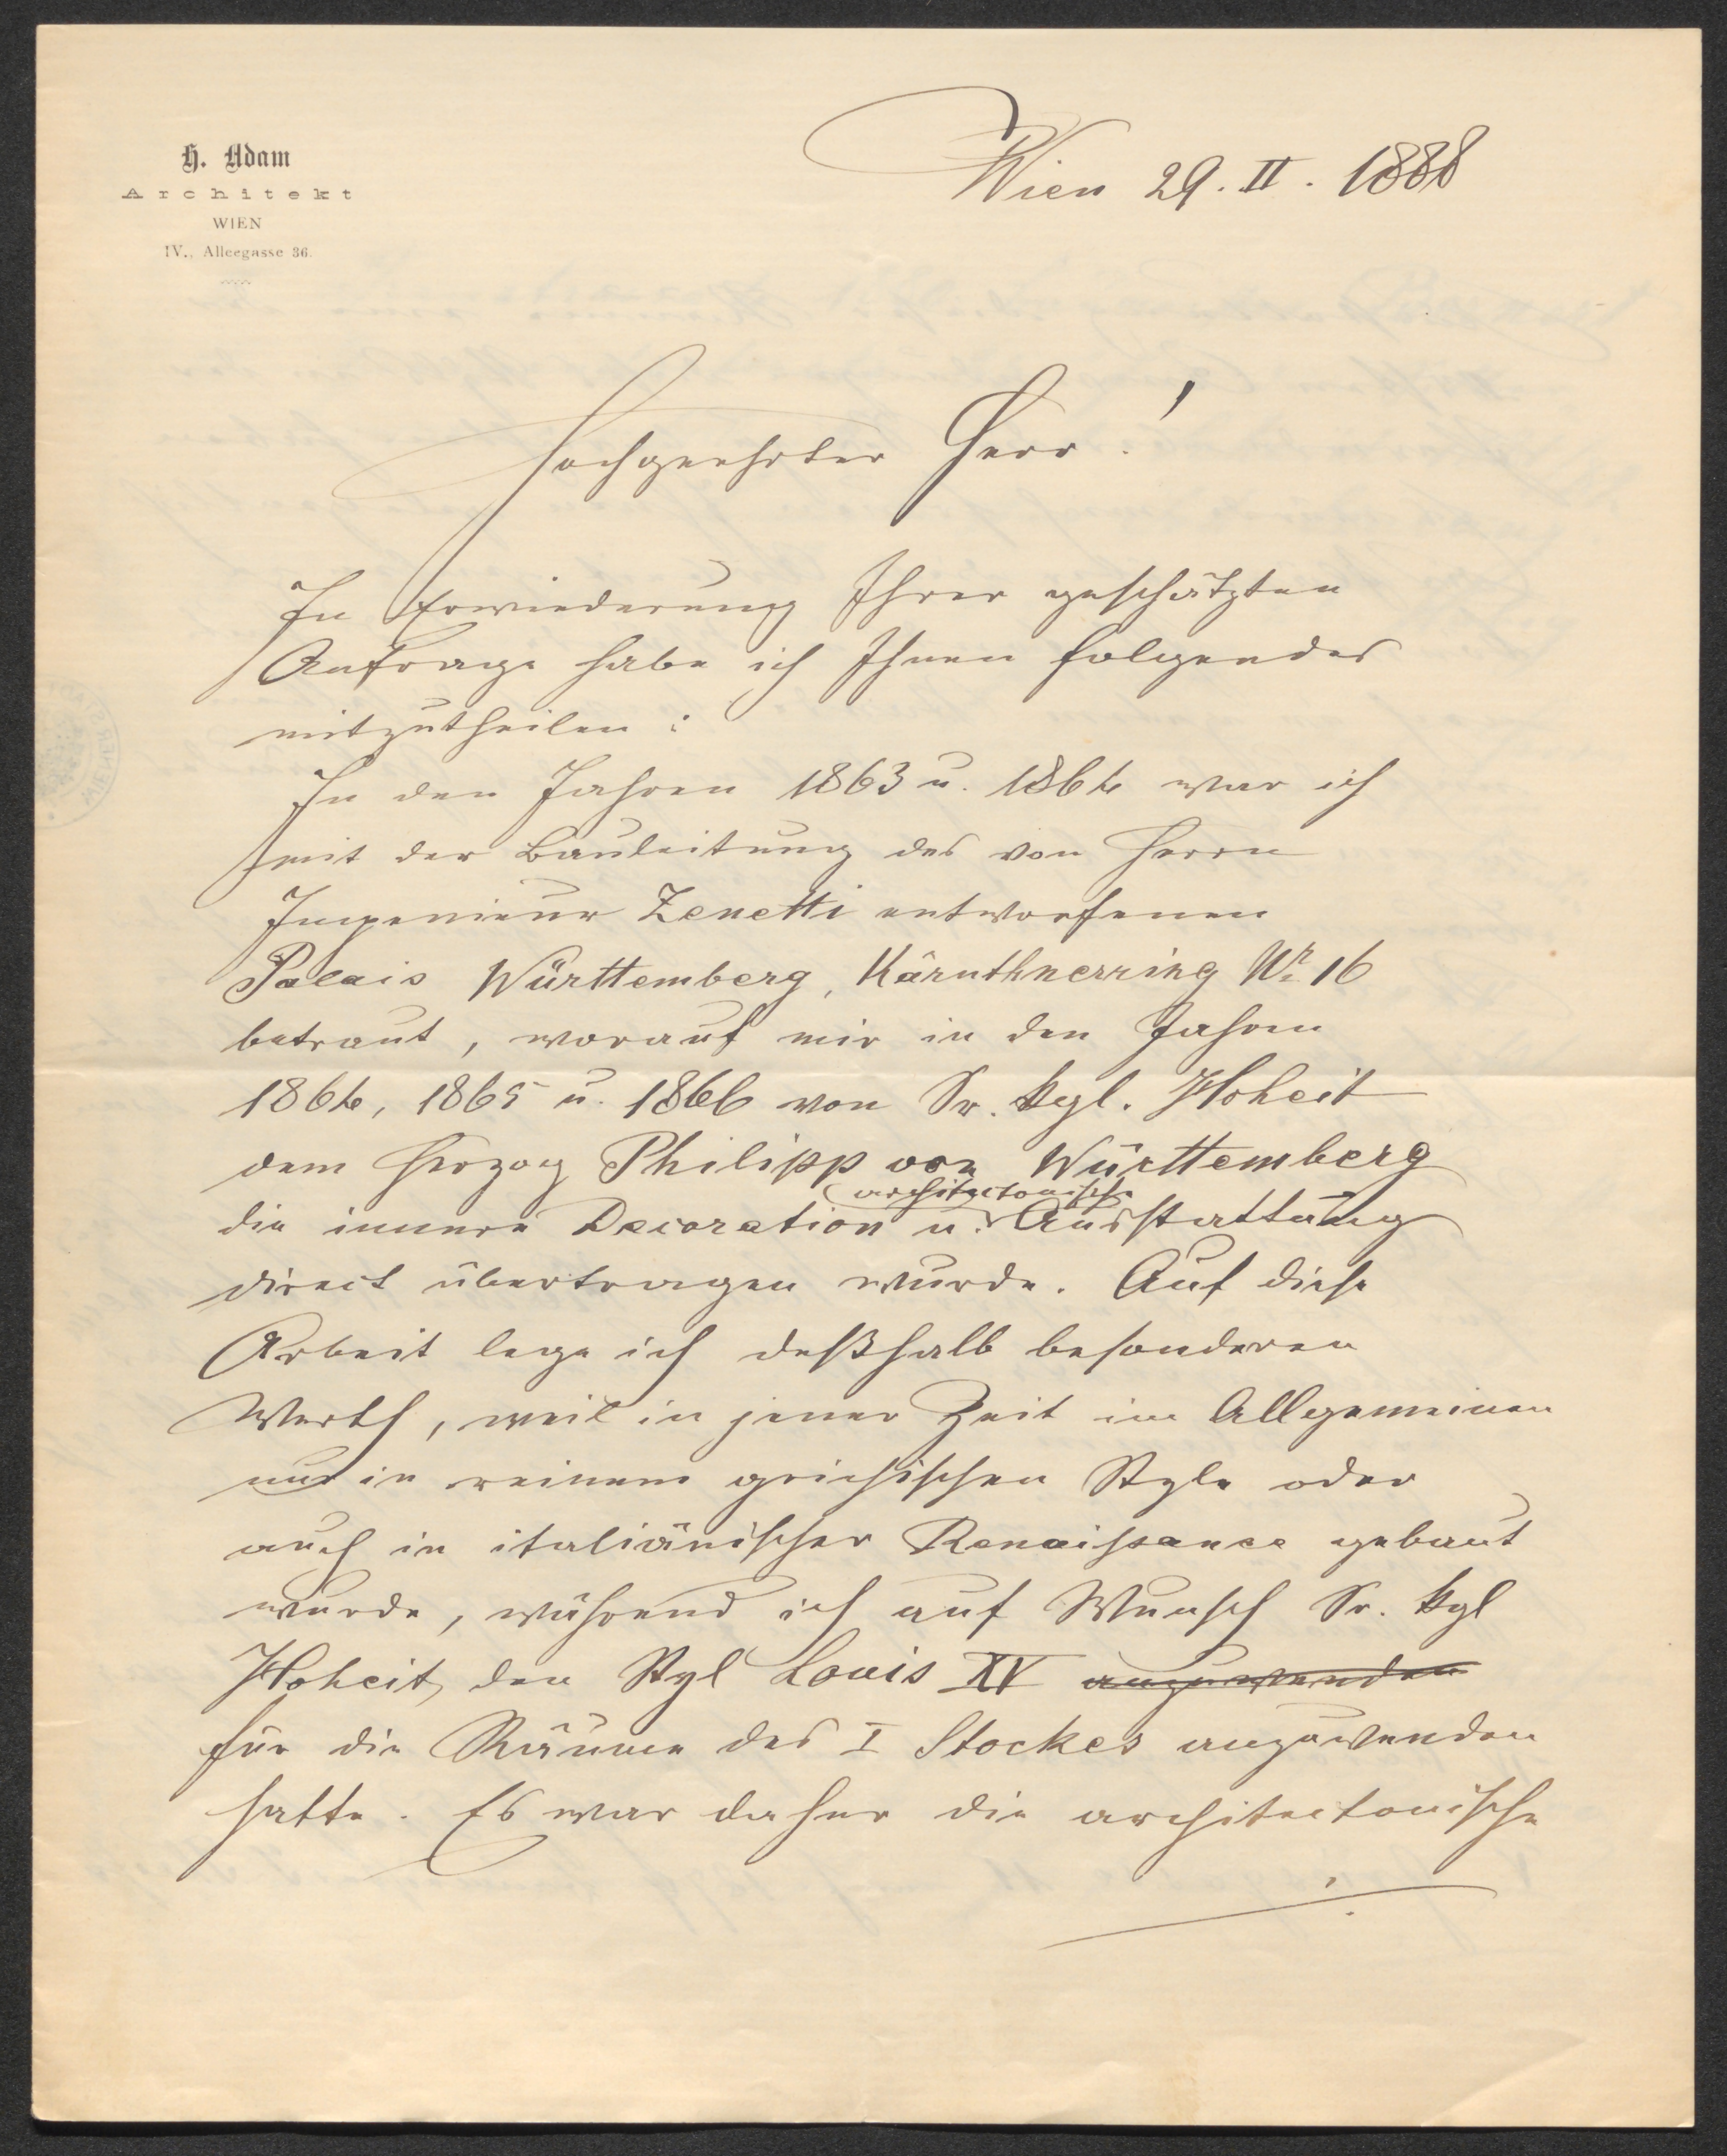 H. Adam
Architekt
WIEN
IV., Alleegasse 36.
Wien 29. II. 1888
Hochgeehrter Herr!
In Erwiederung Ihrer geschätzten
Anfrage habe ich Ihnen folgendes
mitzutheilen:
In den Jahren 1863 u. 1864 war ich
mit der Bauleitung des von Herrn
Ingenieur Zenetti entworfenen
Palais Württemberg, Kärnthnerring Nr. 16
betraut, worauf mir in den Jahren
1864, 1865 u. 1866 von Sr. kgl. Hoheit
dem Herzog Philipp von Württemberg
architectonische
die innere Decoration u. Ausstattung
direct übertragen wurde. Auf diese
Arbeit lege ich deßhalb besonderen
Werth, weil in jener Zeit im Allgemeinen
nur in reinem grichischen Style oder
auch in italiänischer Renaissance gebaut
wurde, während ich auf Wunsch Sr. kgl
Hoheit, den Styl Louis XV anzuwenden
für die Räume des I Stockes anzuwenden
hatte. Es war daher die architectonische
./.